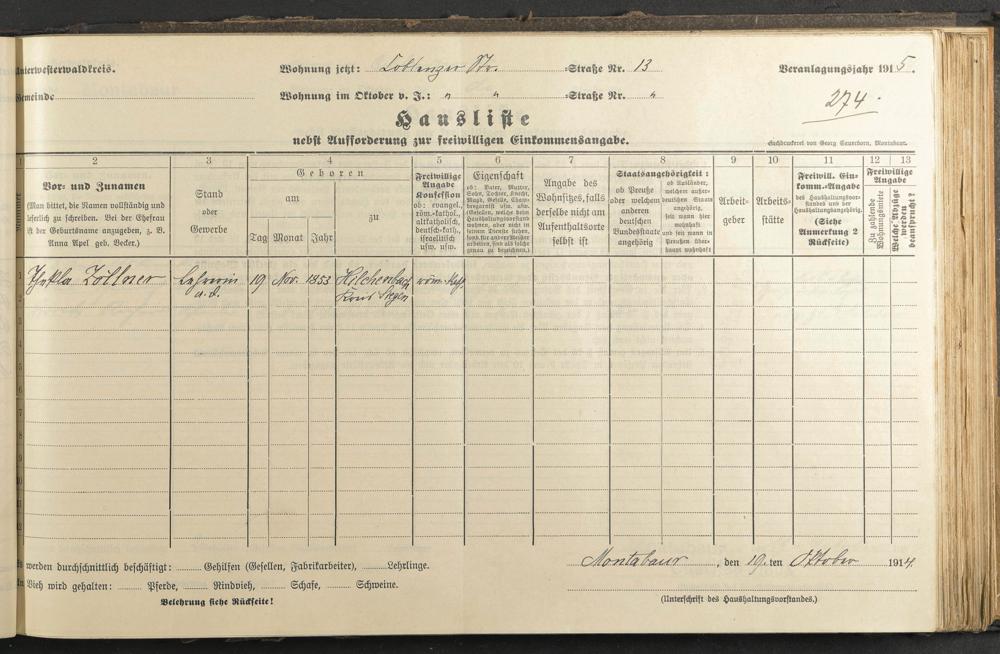 Unterwesterwaldkreis.
Wohnung jetzt: Coblenzer Str. Straße Nr. 13
Veranlagungsjahr 1915.
Gemeinde
Wohnung im Oktober v. J.: " " Straße Nr. "
274.
Hausliste
nebst Aufforderung zur freiwilligen Einkommensangabe.
Buchdruckerei von Georg Sauerborn, Montabaur.
1 2 3 4 5 6 7 8 9 10 11 12 13
Nummer
Vor- und Zunamen
(Man bittet, die Namen vollständig und
leserlich zu schreiben. Bei der Ehefrau
ist der Geburtsname anzugeben, z. B.
Anna Apel geb. Becker.)
Stand
oder
Gewerbe
Geboren
am
zu
Tag Monat Jahr
Freiwillige
Angabe
Konfession
ob: evangel.,
röm.-kathol.,
altkatholisch,
deutsch-kath.,
israelitisch
usw. usw.
Eigenschaft
ob: Vater, Mutter,
Sohn, Tochter, Knecht,
Magd, Gehilfe,
Angabe des
Wohnsitzes, falls
derselbe nicht am
Aufenthaltsorte
selbst ist
Staatsangehörigkeit:
ob Preuße
oder welchem
anderen
deutschen
Bundesstaate
angehörig
ob Ausländer,
welchem außer-
deutschen Staate
angehörig,
seit wann hier
wohnhaft
und seit wann in
Preußen über-
haupt wohnhaft
Arbeit-
geber
Arbeits-
stätte
Freiwill. Ein-
komm.-Angabe
des Haushaltungsvor-
standes und der
Haushaltungsangehörig.
(Siehe
Anmerkung 2
Rückseite)
Freiwillige
Angabe
Zu zahlende
Wohnungsmiete
Welche Abzüge
werden
beansprucht?
1 Thekla Zöllner Lehrerin 19 Nov. 1853 Hilchenbach röm. kath
2 a. D. Kreis Siegen
3
4
5
6
7
8
9
10
11
12
Es werden durchschnittlich beschäftigt: Gehilfen (Gesellen, Fabrikarbeiter), Lehrlinge.
Montabaur, den 19. ten Oktober 1914.
An Vieh wird gehalten: Pferde, Rindvieh, Schafe, Schweine.
Belehrung siehe Rückseite!
(Unterschrift des Haushaltungsvorstandes.)